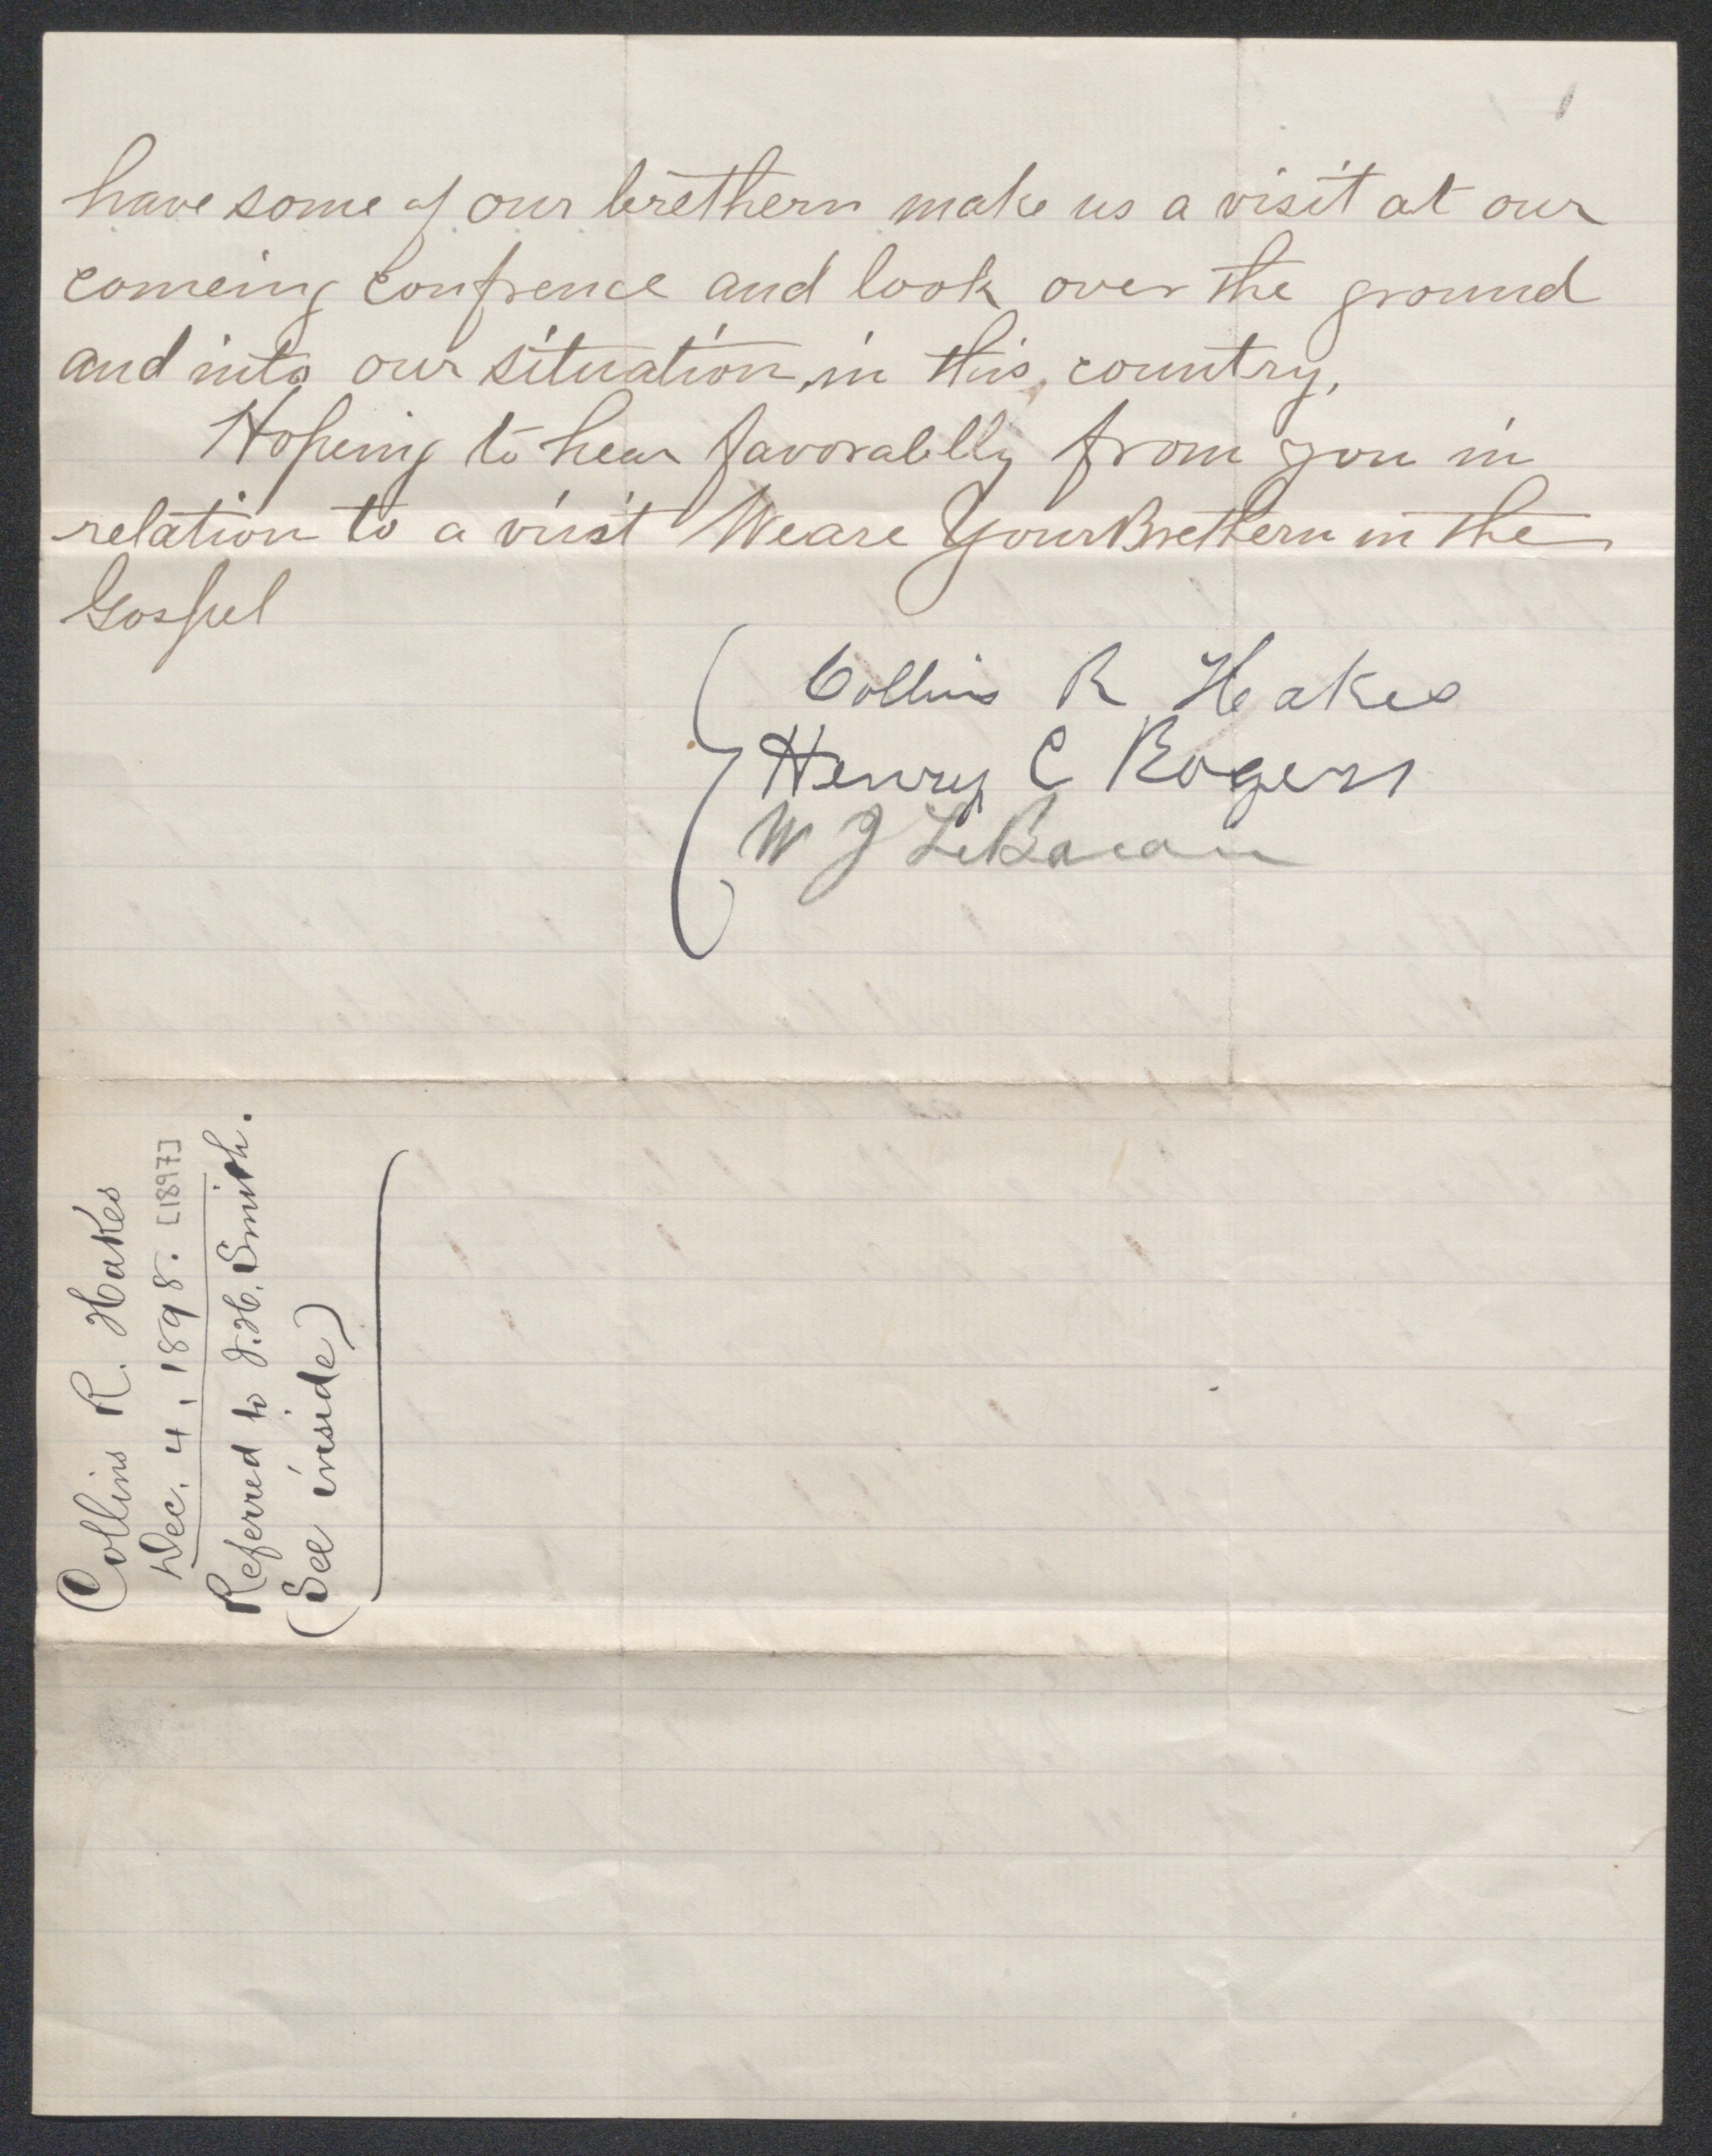 have some of our brethern make us a visit at our
comeing confrence and look over the ground
and into our situation, in this, country,
Hopeing to hear favorablly from you in
relation to a visit We are Your Brethern in the
Gospel
Collins R Hakes
Henry C Rogers
W J LeBaron
Collins R. Hakes
Dec. 4, 1898. [1897]
Referred to J.H. Smith.
(See inside)